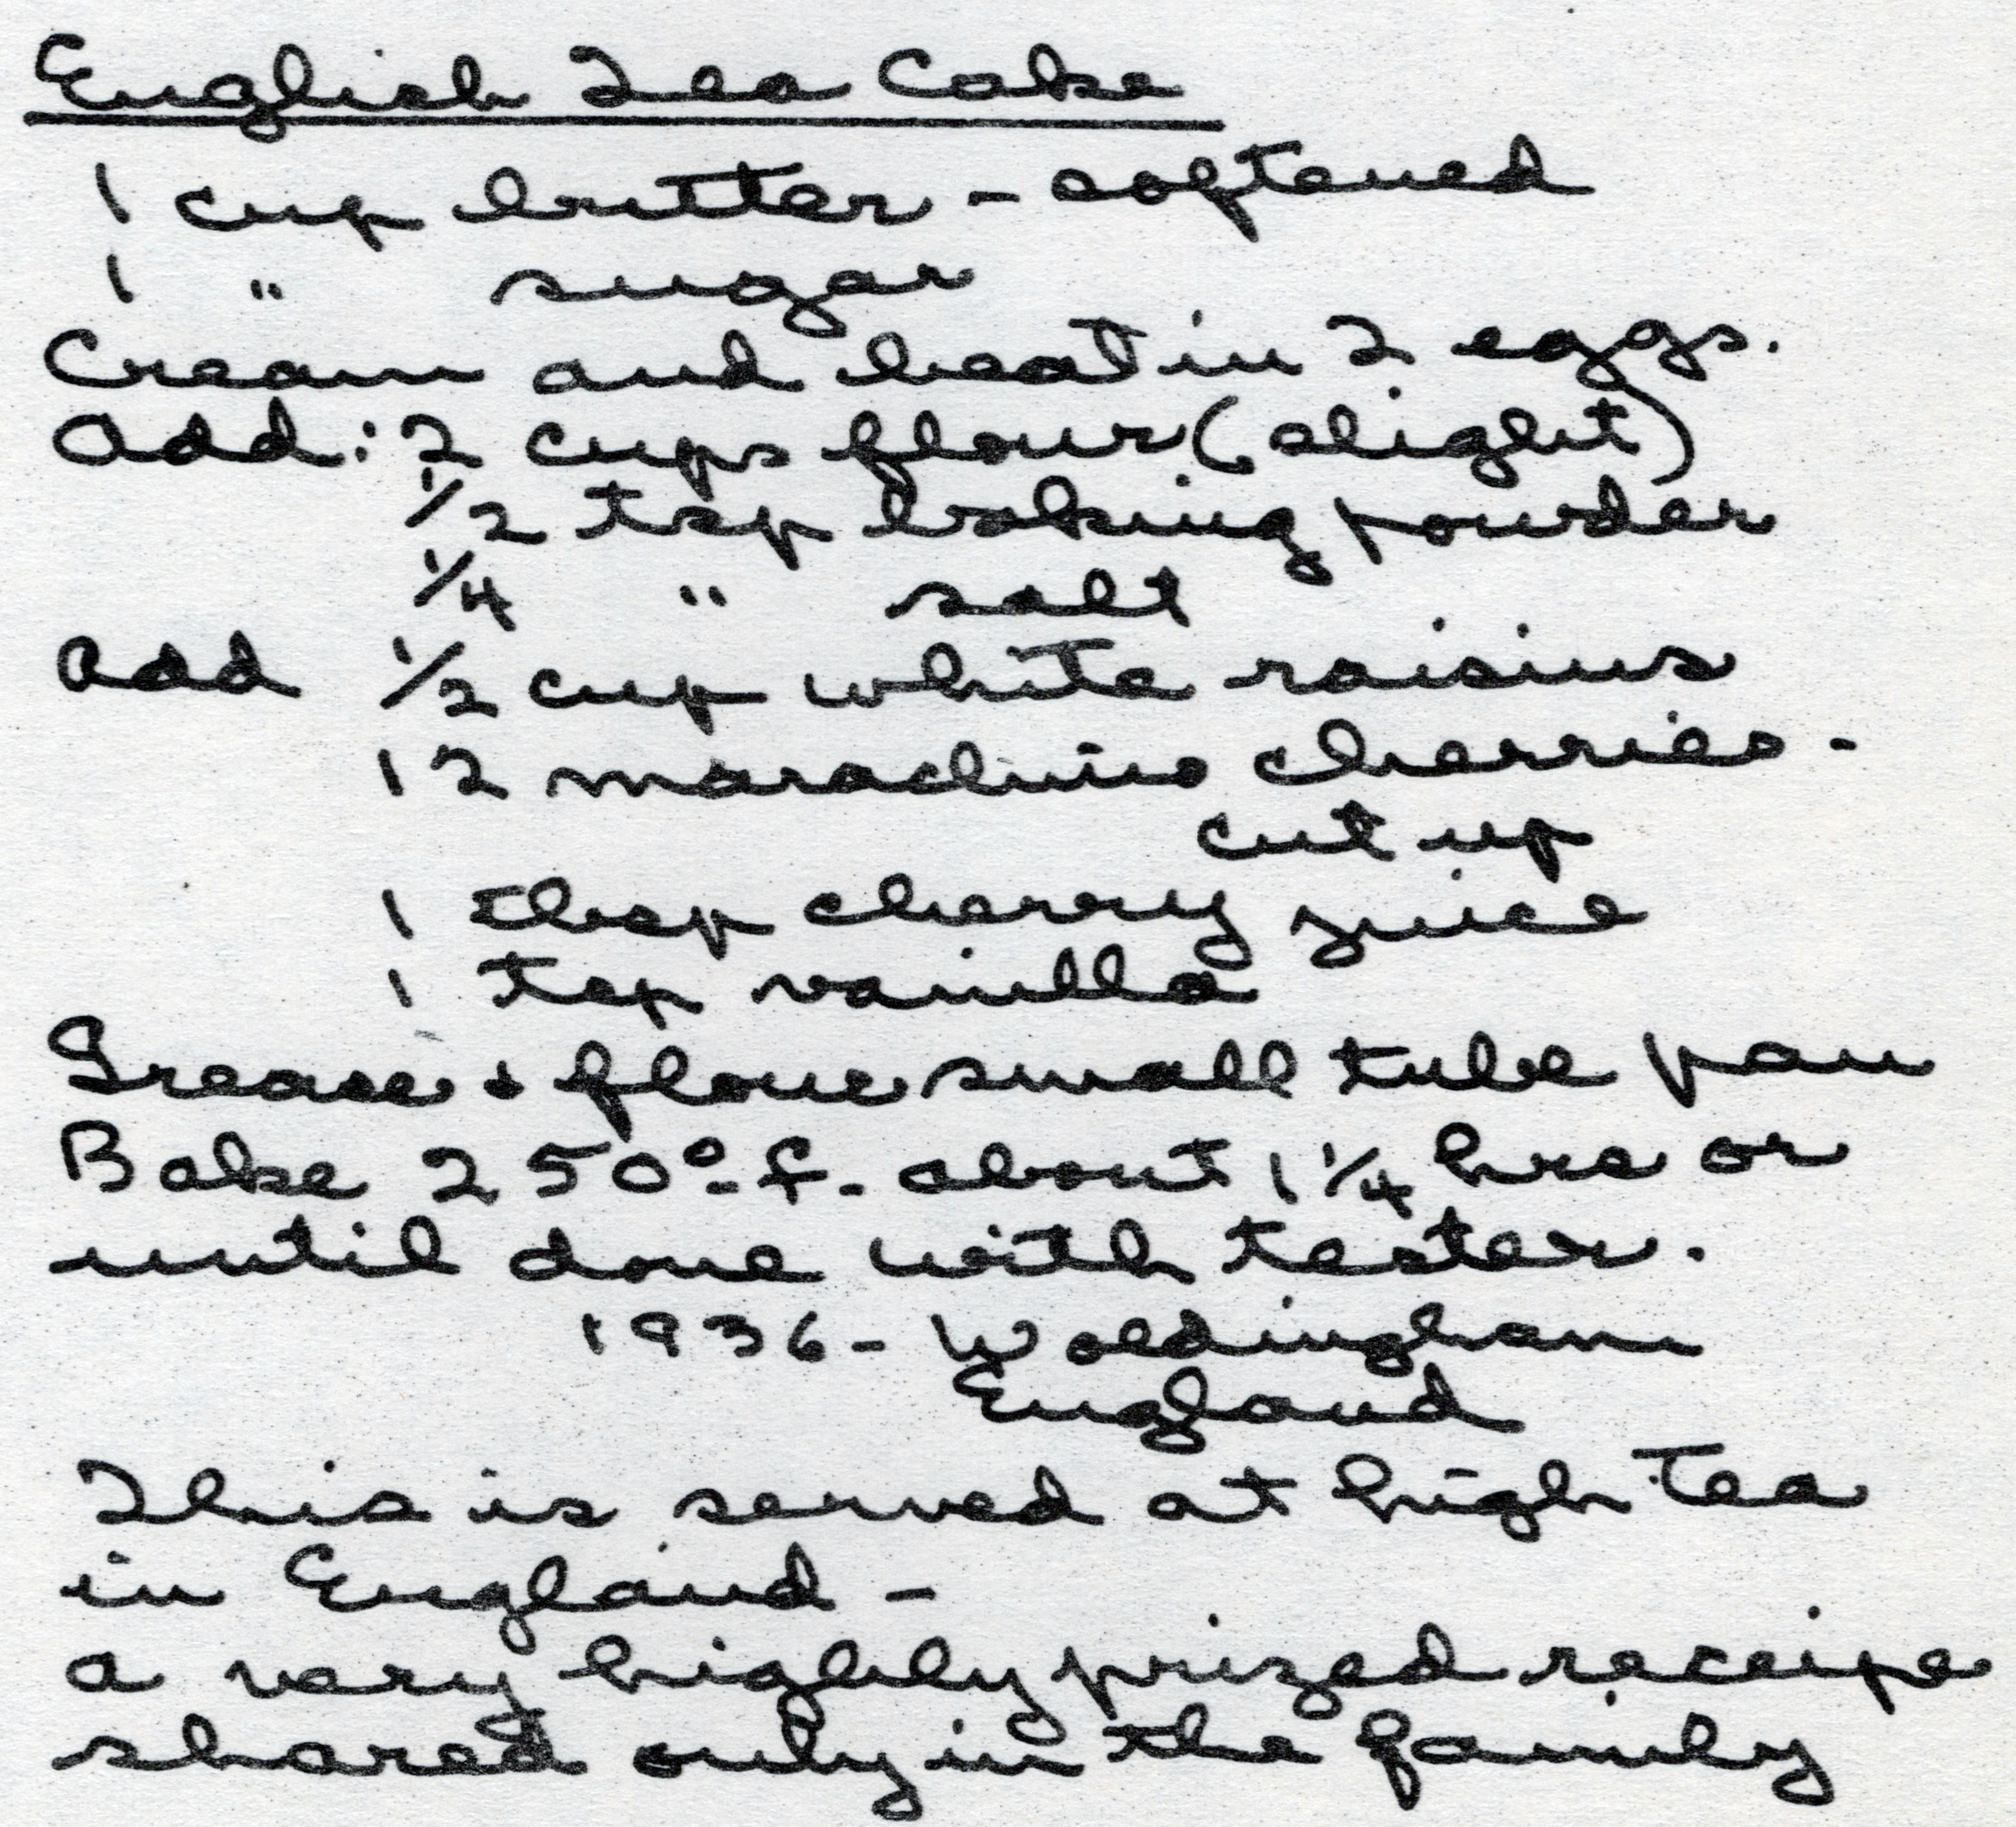 English Tea Cake
1 cup butter - softened
1 " sugar
Cream and beat in 2 eggs.
Add: 2 cups flour (slight)
1/2 tsp baking powder
1/4 " salt
Add 1/2 cup white raisins
12 marachino cherries -
cut up
1 tbsp cherry juice
1 tsp vanilla
Grease + flour small tube pan
Bake 250° f. about 1 1/4 hrs or
until done with tester.
1936 - Woldingham
England
This is served at high tea
in England -
a very highly prized receipe
shared only in the family